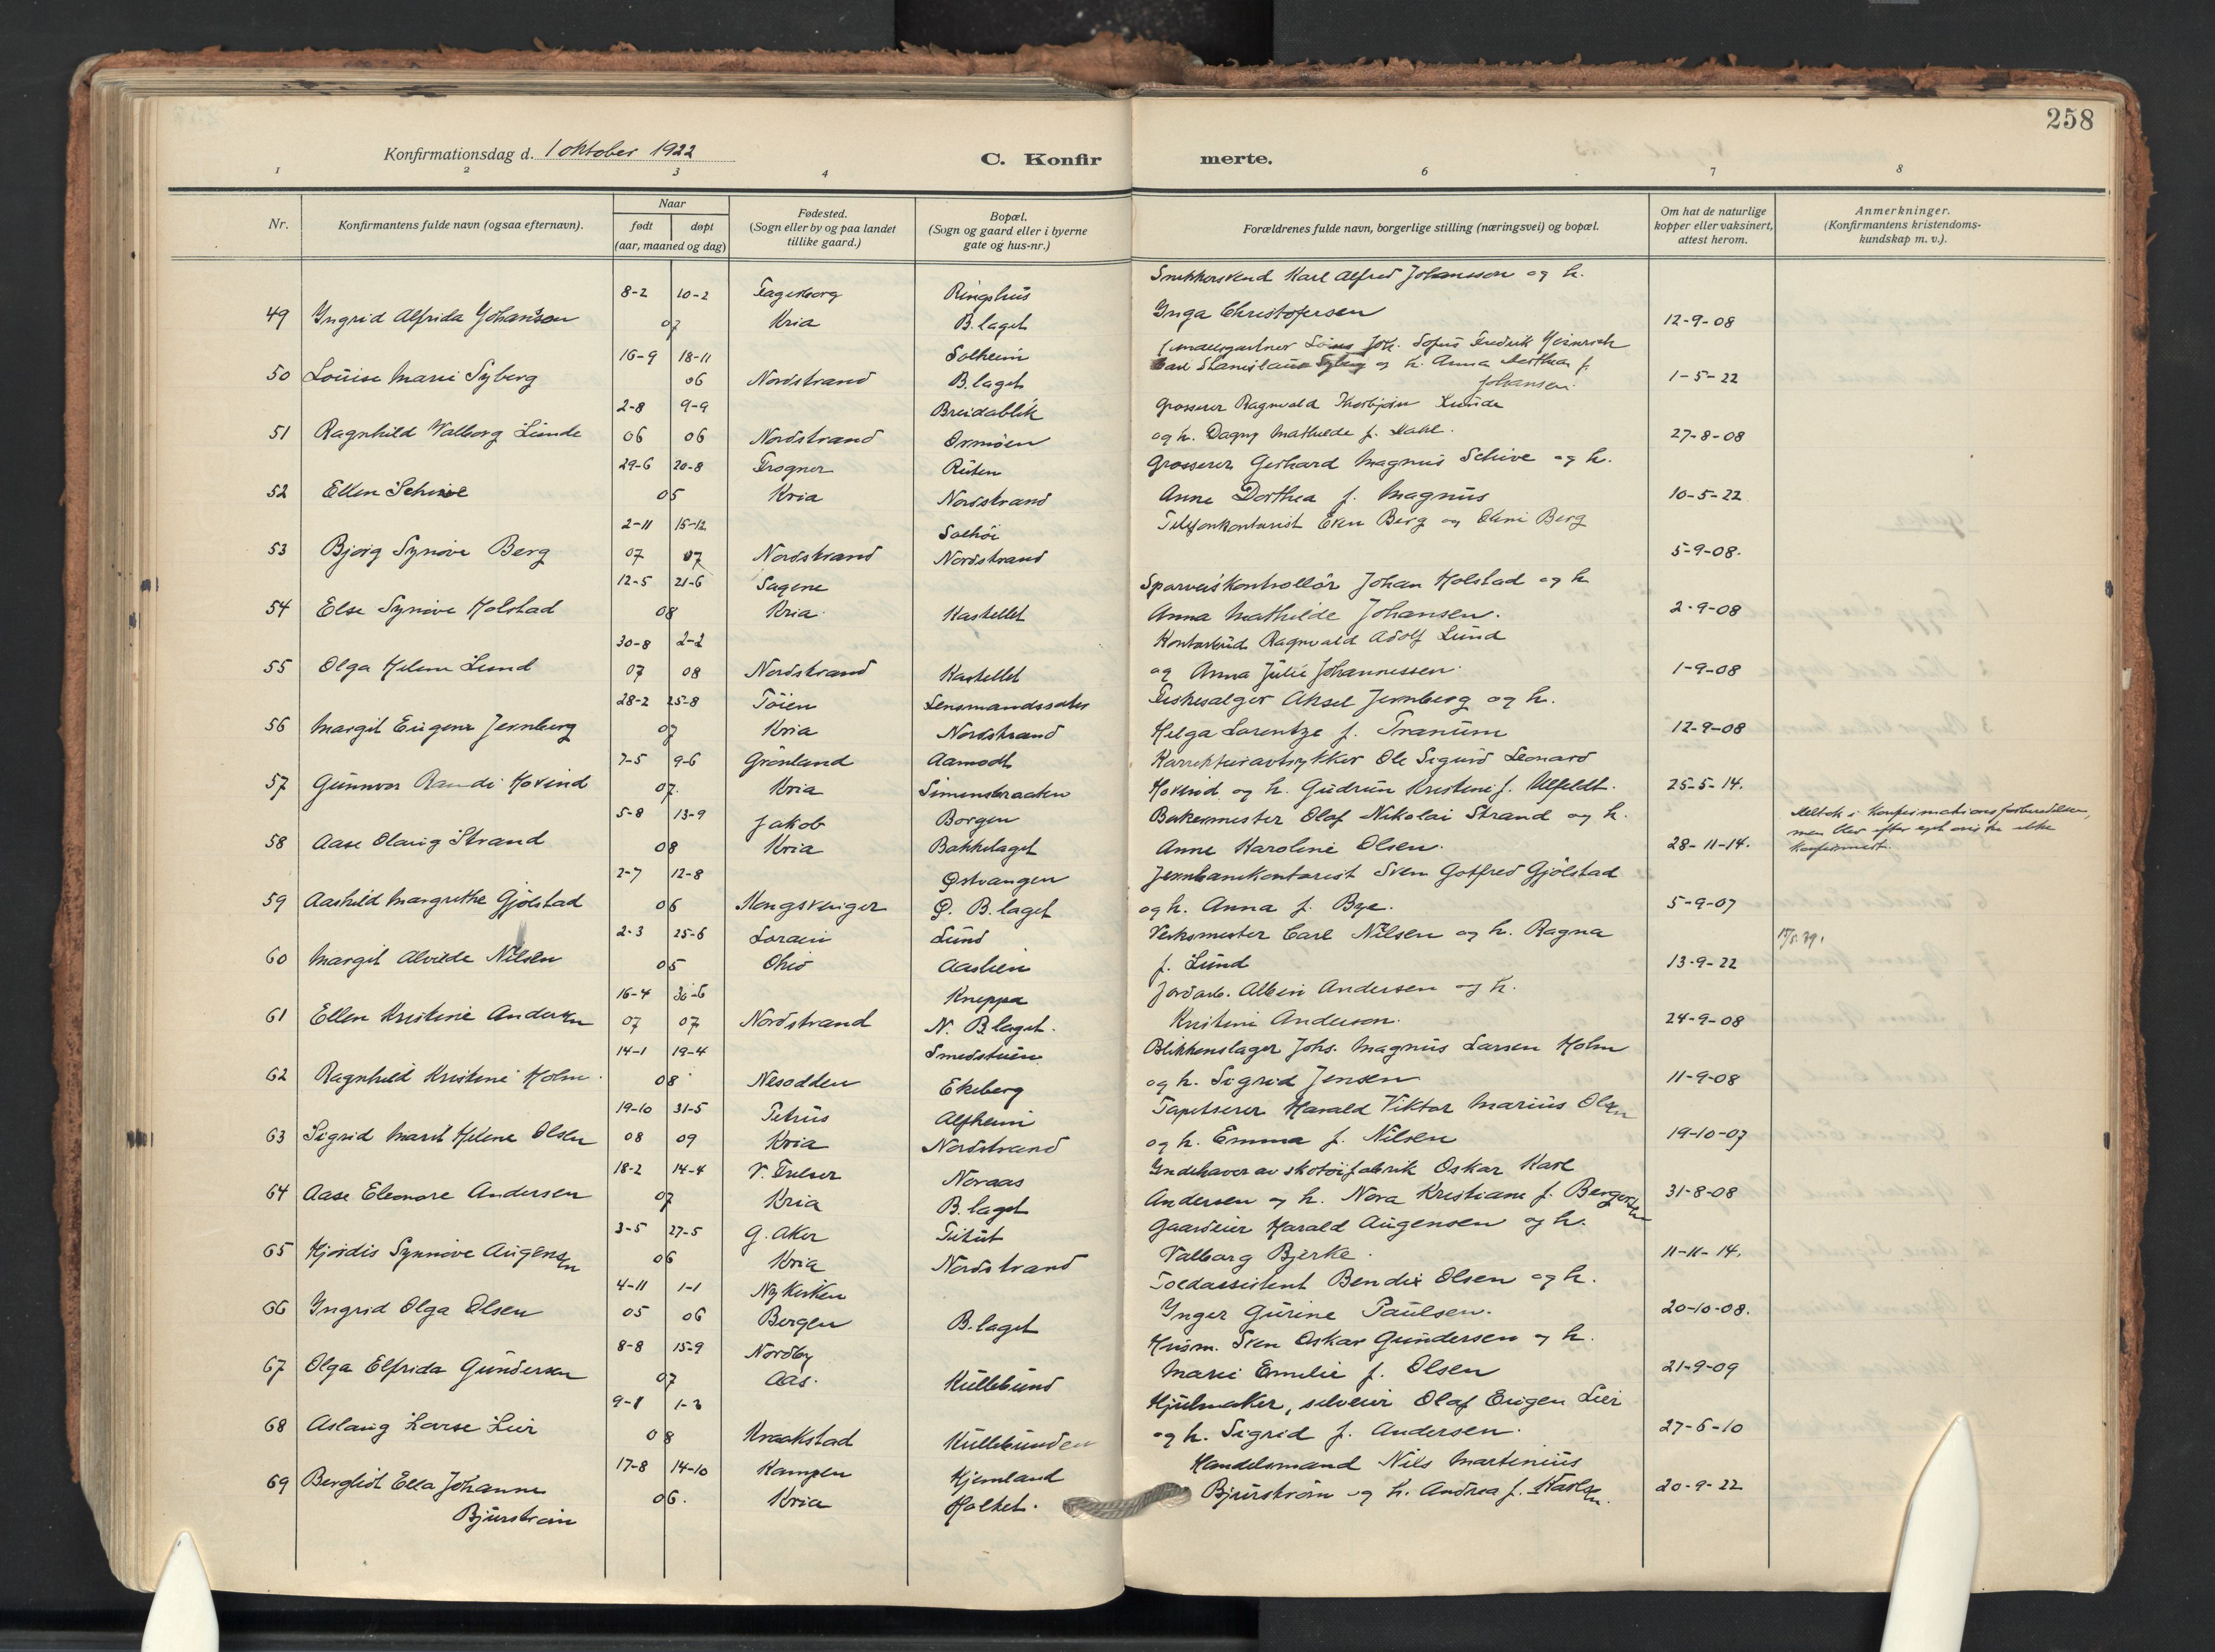 258
Konfirmationsdag d. 1 oktober 1922
C. Konfirmerte.
1 2 3 4 6 7 8
Nr.
Konfirmantens fulde navn (ogsaa efternavn).
Naar
født døpt
(aar, maaned og dag)
Fødested.
(Sogn eller by og paa landet
tillike gaard.)
Bopæl.
(Sogn og gaard eller i byerne
gate og hus-nr.)
Forældrenes fulde navn, borgerlige stilling (næringsvei) og bopæl.
Om hat de naturlige
kopper eller vaksinert,
attest herom.
Anmerkninger.
(Konfirmantens kristendoms-
kundskap m. v.).
8-2 10-2 Fagerborg Ringshus Snekkersvend Karl Alfred Johansson og h.
49 Ingrid Alfrida Johanson 07 Kria B.laget Inga Christofersen 12-9-08
16-9 18-11 Solheim Joh. Sofus Fredrik Heinrich
50 Louise Marie Syberg 06 Nordstrand B.laget Carl Stanislaus Syberg og h. Anna f. 1-5-22
Johansen.
2-8 9-9 Breidablik Grosserer Ragnvald Lunde
51 Ragnhild Valborg Lunde 06 06 Nordstrand Ormøen og h. Dagny Mathilde f. Dahl. 27-8-08
29-6 20-8 Frogner Ruten Grosserer Gerhard Magnus Schive og h.
52 Ellen Schive 05 Kria Nordstrand Anne Dorthea f. Magnus 10-5-22
2-11 15-12 Solhøi Telefonkontorist Berg og Berg
53 Bjørg Synøve Berg 07 07 Nordstrand Nordstrand 5-9-08.
12-5 21-6 Sagene Sporveiskontrollør Johan Holstad og h
54 Else Synøve Holstad 08 Kria. Kastellet Anna Mathilde Johansen. 2-9-08
30-8 2-2 Kontorbud Ragnvald Adolf Lund
55 Olga Helene Lund 07 08 Nordstrand Kastellet og Anna Julie Johannessen. 1-9-08
28-2 25-8 Tøien Lensmandssæter Fiskesælger Aksel Jernberg og h.
56 Margit Eugenie Jernberg 07 Kria Nordstrand Helga Lorentze f. Tranum 12-9-08
7-5 9-6 Grønland Aamodt Korrekturavtrykker Ole Sigurd Leonard
57 Gunnvor Randi Hovind 07. Kria Simensbraaten Hovind og h. Gudrun Kristine f. Ulfeldt. 25-5-14.
5-8 13-9 Jakob Borgen Bakermester Olaf Nikolai Strand og h. Deltok i Konfirmationsforberedelsen,
58 Aase Olaug Strand 08 Kria Bækkelaget Anne Karoline Olsen. 28-11-14. men blev efter eget ønske ikke
Konfirmert.
2-7 12-8 Østvangen Jernbanekontorist Sven Gotfred Gjølstad
59 Aashild Margrethe Gjølstad 06 Kongsvinger Ø. B.laget og h. Anna f. Bye. 5-9-07
2-3 25-6 Lorain Lund Verksmester Carl Nilsen og h. Ragna
60 Margit Alvilde Nilsen 05 Ohio Aaslien f. Lund 13-9-22
16-4 30-6 Kneppa Jordarb. Albin Andersen og h.
61 Ellen Kristine Andersen 07 07 Nordstrand N. B.laget. Kristine Anderson. 24-9-08
14-1 19-4 Smedstuen Blikkenslager Johs. Magnus Larsen Holm
62 Ragnhild Kristine Holm. 08 Nesodden Ekeberg og h. Sigrid Jensen 11-9-08
19-10 31-5 Petrus Alfheim Tapetserer Harald Viktor Marius Olsen
63 Sigrid Marit Helene Olsen 08 09 Kria Nordstrand og h. Emma f. Nilsen 19-10-07
18-2 14-4 V. Frelser Noraas Indehaver av skotøifabrik Oskar Karl
64 Aase Eleonore Andersen 07 Kria B.laget Andersen og h. Nora Kristiane f. Bergersen 31-8-08
3-5 27-5 G. Aker Titut Gaardeier Harald Augensen og h.
65 Hjørdis Synnøve Augensen 06 Kria Nordstrand Valborg Bjerke. 11-11-14.
4-11 1-1 Nykirken Toldassistent Bendix Olsen og h.
66 Ingrid Olga Olsen 05 06 Bergen B.laget Inger Gurine Paulsen. 20-10-08.
8-8 15-9 Nordby Husm. Sven Oskar Gundersen og h.
67 Olga Elfrida Gundersen 07 Aas. Kullebund Marie Emilie f. Olsen 21-9-09
9-1 1-3 Hjulmaker, selveier Olaf Eugen Lier
68 Aslaug Lovise Lier 08 Kraakstad Kullebunden og h. Sigrid f. Andersen. 27-6-10
17-8 14-10 Kampen Hjemland Handelsmand Nils Martinius
69 Bergliot Ella Johanne 06. Kria Holtet. Bjurstrøm og h. Andrea f. Karlsen. 20-9-22
Bjurstrøm